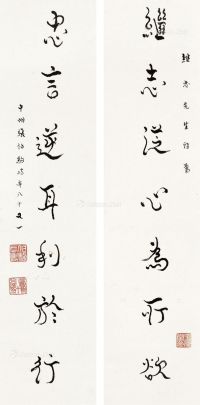 继志先生詩家
繼志從心為所欲
忠言逆耳利於行
中州張伯駒時年八十又一